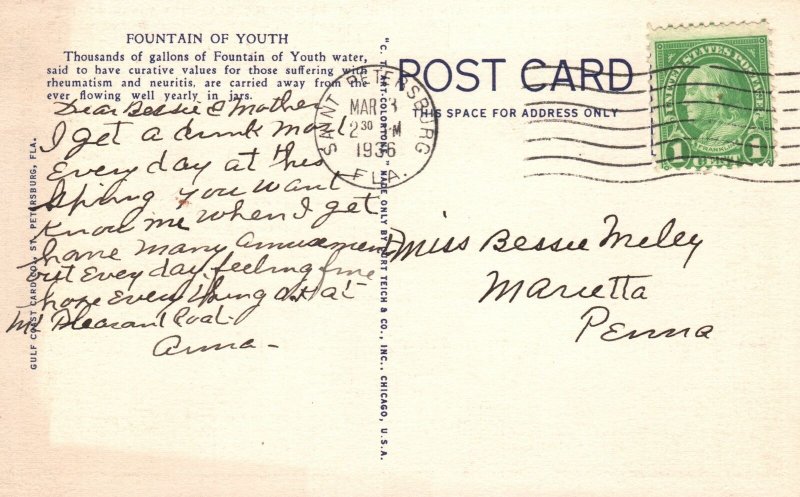 FOUNTAIN OF YOUTH
Thousands of gallons of Fountain of Youth water,
said to have curative values for those suffering with
rheumatism and neuritis, are carried away from the
ever flowing well yearly in jars.
Dear Bessie & Mother
I get a drink most
Every day at this
Spring you wont
Know me when I get
home many amusement
but Every day feeling fine
hope Every thing at
Mt Pleasant
Anna-
GULF COAST CARD CO., ST. PETERSBURG, FLA.
"C. T. ART-COLORTONE" MADE ONLY BY CURT TEICH & CO., INC., CHICAGO, U.S.A.
POST CARD
THIS SPACE FOR ADDRESS ONLY
SAINT PETERSBURG
MAR 3
2 30 PM
1936
FLA.
UNITED STATES POSTAGE
FRANKLIN
1 CENT 1
Miss Bessie Meley
Marietta
Penna